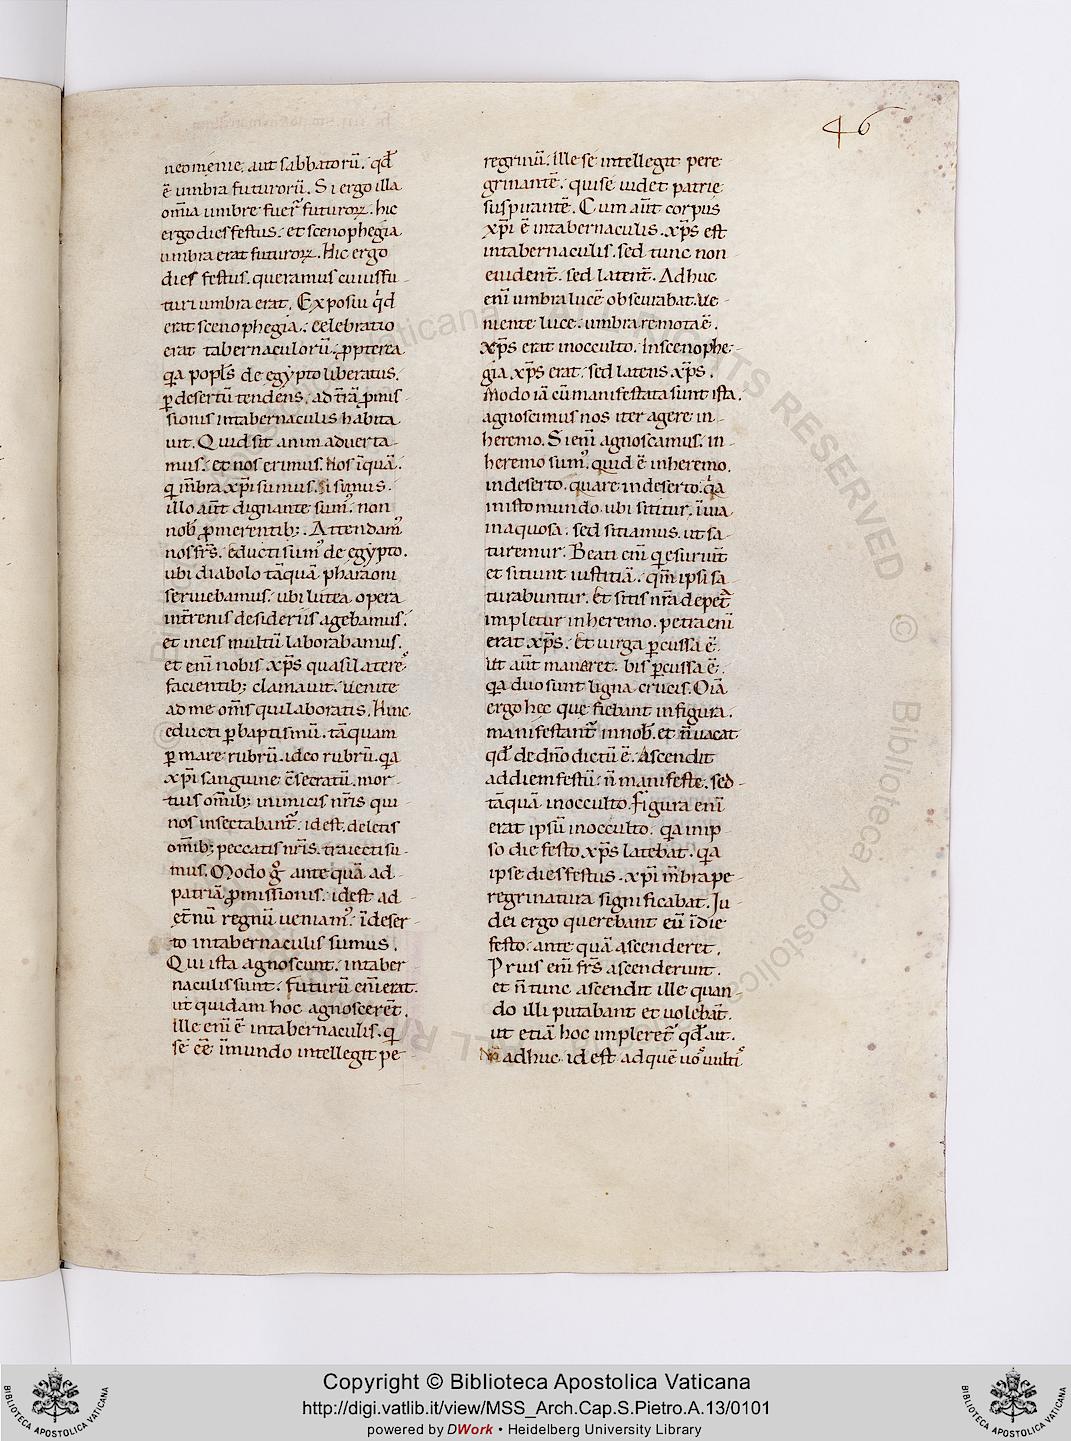 46
neomenie. aut sabbatorũ. qđ
ẽ umbra futurorũ. Si ergo illa
om̃ia umbre fuer̃ futuroꝝ. hic
ergo dies festus. et scenophegia
umbra erat futuroꝝ. Hic ergo
dies festus. queramus cuius fu-
turi umbra erat. Exposui qđ
erat scenophegia. Celebratio
erat tabernaculorũ. ꝓpterea
q̃a popl̃s de egypto liberatus.
ꝑ desertũ tendens. ad t̃rã ꝓmis-
sionis intabernaculis habita-
uit. Quid sit animaduerta-
mus. et nos erimus. Nos ĩquã.
q̃ m̃bra xp̃i sumus. si sumus.
illo aũt dignante sum᷒. non
nob̃ ꝓmerentib;. Attendam᷒
nos fr̃s. Educti sum᷒ de egypto.
ubi diabolo tãquã pharaoni
seruiebamus. ubi lutea opera
int̃renis desideriis agebamus.
et ineis multũ laborabamus.
et enĩ nobis xp̃s quasi lateres
facientib; clamauit. Uenite
ad me om̃s qui laboratis. Hinc
educti ꝑ baptismũ. tãquam
ꝑ mare rubrũ. ideo rubrũ. q̃a
xp̃i sanguine c̃secratũ. mor-
tuis om̃ib; inimicis nr̃is qui
nos insectabant̃. idest. deletis
om̃ib; peccatis nr̃is. traiecti su-
mus. Modo g̊ ante quã ad
patriã ꝓmissionis. idest ad
et̃nũ regnũ ueniam᷒. ĩ deser-
to intabernaculis sumus.
Qui ista agnoscunt. intaber-
naculis sunt. Futurũ enĩ erat.
ut quidam hoc agnoscerẽt.
Ille enĩ ẽ intabernaculis. q̃
se ẽe ĩmundo intellegit pe-
regrinũ. Ille se intellegit pere-
grinantẽ. qui se uidet patrie
suspirantẽ. Cum aũt corpus
xp̃i ẽ intabernaculis. xp̃s est
intabernaculis. sed tunc non
euident̃. sed latent̃. Adhuc
enĩ umbra lucẽ obscurabat. Ue-
niente luce. umbra remota ẽ.
Xp̃s erat inocculto. Inscenophe-
gia xp̃s erat. sed latens xp̃s.
Modo iã cũ manifestata sunt ista.
agnoscimus nos iter agere in-
heremo. Si enĩ agnoscamus. in-
heremo sum᷒. quid ẽ inheremo.
indeserto. quare indeserto. q̃a
in isto mundo. ubi sititur. ĩ uia
inaquosa. sed sitiamus. ut sa-
turemur. Beati enĩ q̃ esuriunt
et sitiunt iustitiã. qm̃ ipsi sa-
turabuntur. Et sitis nr̃a de pet̃
impletur inheremo. petra enĩ
erat xp̃s. Et uirga ꝑcussa ẽ.
Ut aũt maneret. bis ꝑcussa ẽ.
q̃a duo sunt ligna crucis. Om̃ia
ergo hec que fiebant infigura.
manifestant̃ innob̃. et ñ uacat
qđ de dño dictũ ẽ. Ascendit
addiem festũ. ñ manifeste. sed-
tãquã inocculto. Figura enĩ
erat ipsũ inocculto. q̃a in ip
so die festo xp̃s latebat. q̃a
ipse dies festus. xp̃i m̃bra pe-
regrinatura significabat. Iu-
dei ergo querebant eũ ĩ die
festo. ante quã ascenderet.
Prius enĩ fr̃s ascenderunt.
et ñ tunc ascendit ille quan-
do illi putabant et uolebãt.
ut etiã hoc impleret̃ qđ ait.
adhuc. idest ad quẽ uos uultis
Copyright © Biblioteca Apostolica Vaticana
http://digi.vatlib.it/view/MSS_Arch.Cap.S.Pietro.A.13/0101
powered by DWork • Heidelberg University Library
BIBLIOTECA APOSTOLICA VATICANA
BIBLIOTECA APOSTOLICA VATICANA